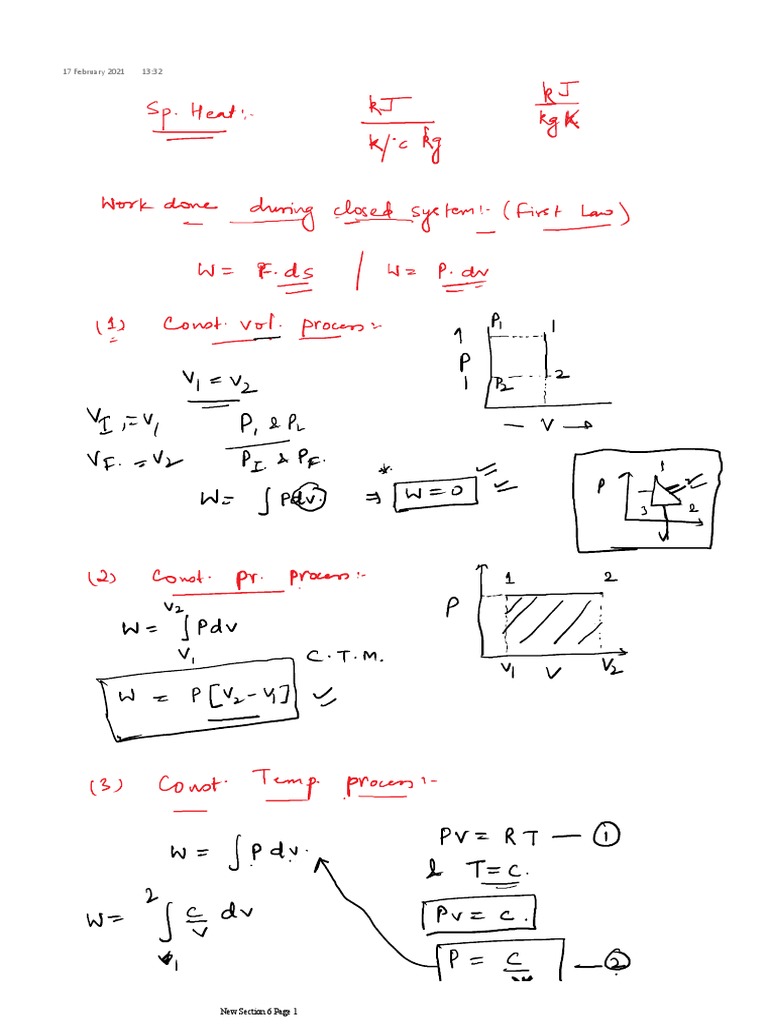 17 February 2021 13:32
Sp. Heat:- kJ / k/°c kg kJ / kg K
Work done during closed system:- (First Law)
W = F.ds / W = P.dv
(1) Const. vol. process:-
P1 1
1 P 1 P2 2
V
V1 = V2
VI, = V1 P1 & P2
VF. = V2 PI & PF.
W = ∫ Pdv. ⇒ * W = 0
P 1 2 3 V
(2) Const. pr. process:-
P 1 2
V1 V V2
W = ∫ V1 V2 Pdv
C.T.M.
W = P[V2 - V1]
(3) Const. Temp. process:-
W = ∫ P dv. PV = RT — 1
& T = c.
W = ∫ 1 2 c/v dv PV = c.
P = c/v — 2
New Section 6 Page 1